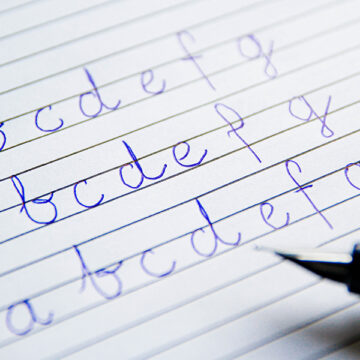 c d e f g
b c d e f g
a b c d e f